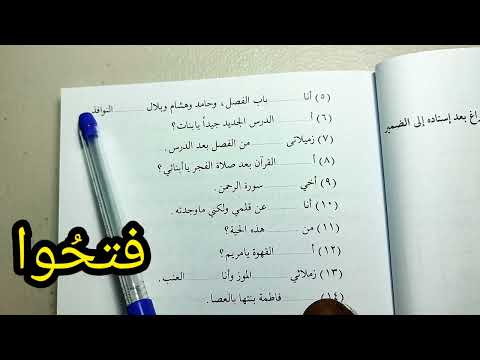 (٥) أنا ......... باب الفصل ، وحامد وهشام وبلال ......... النوافذ
(٦) أ ......... الدرس الجديد جيداً يابنات؟
(٧) زميلاتى ......... من الفصل بعد الدرس .
(٨) أ ......... القرآن بعد صلاة الفجر ياأبنائي؟
(٩) أخي ......... سورة الرحمن .
(١٠) أنا ......... عن قلمي ولكني ماوجدته .
(١١) من ......... هذه الحية؟
(١٢) أ ......... القهوة يامريم؟
(١٣) زملائي ......... الموز وأنا ......... العنب .
(١٤) ......... فاطمة بنتها بالعصا .
راغ بعد إسناده إلى الضمير
فتحُوا